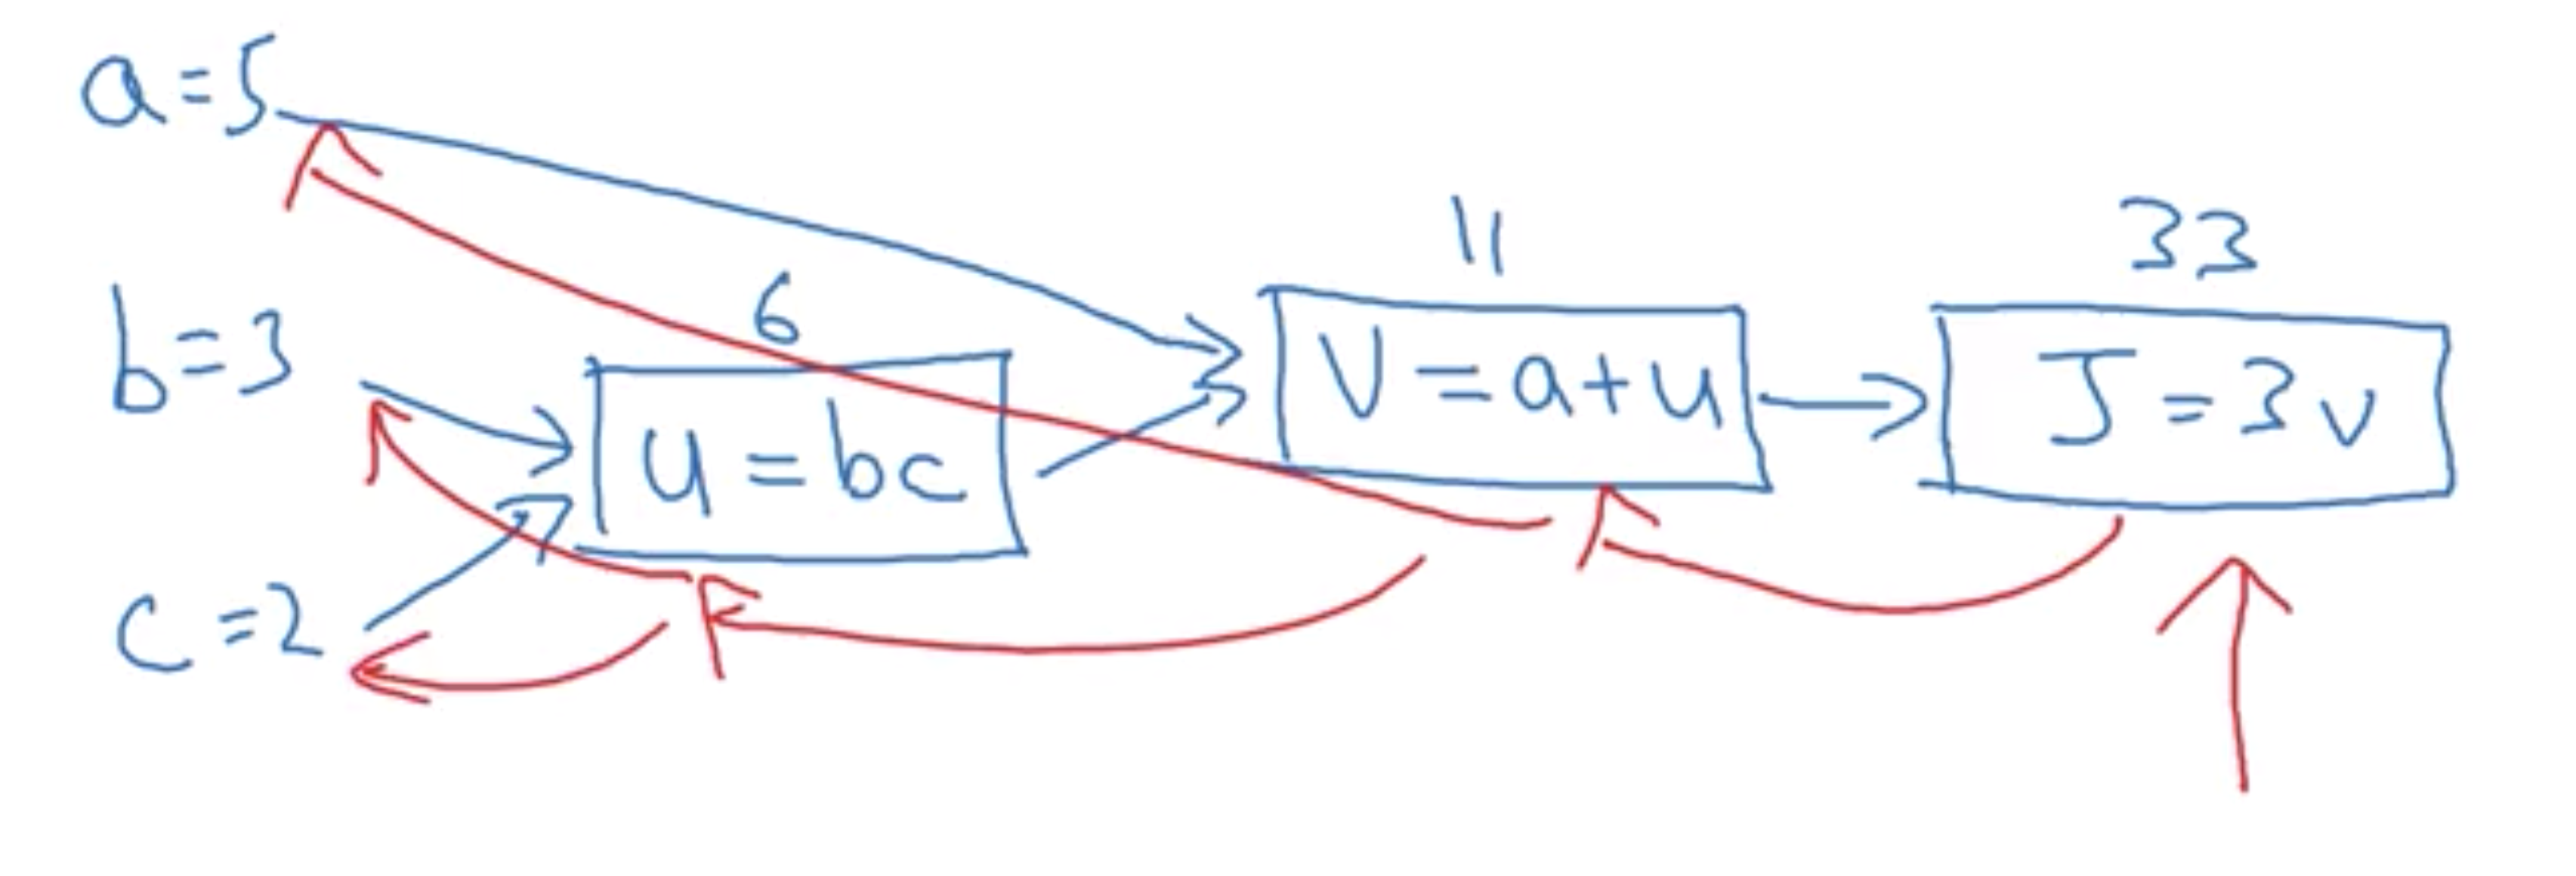 a=5
b=3
c=2
6
u=bc
11
V=a+u
33
J=3v